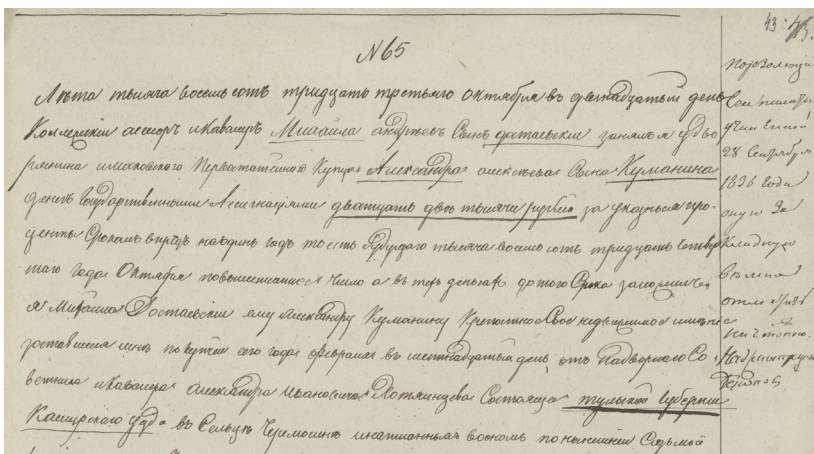 43
N 65
Лѣта тысяча восемь сотъ тридцать третьяго октября въ двенадцатый день
Колежский асессоръ и кавалеръ Михайла андреевъ Сынъ достаевский занялъ я у дво
рянина и московского Первостатейного Купца Александра алексѣева Сына Куманина
денегъ Государственными Асигнацiями дватцать двѣ тысячи рублей за указные про
центы Срокомъ впредь на одинъ годъ то есть будущаго тысяча восемь сотъ тридцать четвер
таго года Октября вышеписанное число а въ тѣхъ деньгахъ до того Срока заложилъ
я Михайла Достаевский ему Александру Куманину Крепостное Свое недвижимое имѣние
доставшееся мнѣ по купчей сего года февраля въ день отъ Надворнаго Со
ветника и Кавалера Александра Ивановича Хотяинцева Состоящее тульской Губернии
Каширского уезда въ Сельцѣ Черемошнѣ и написанныхъ во ономъ по нынешней Седьмой
По резолюции
28 Сентября
1836 Года
оную За
Кладную